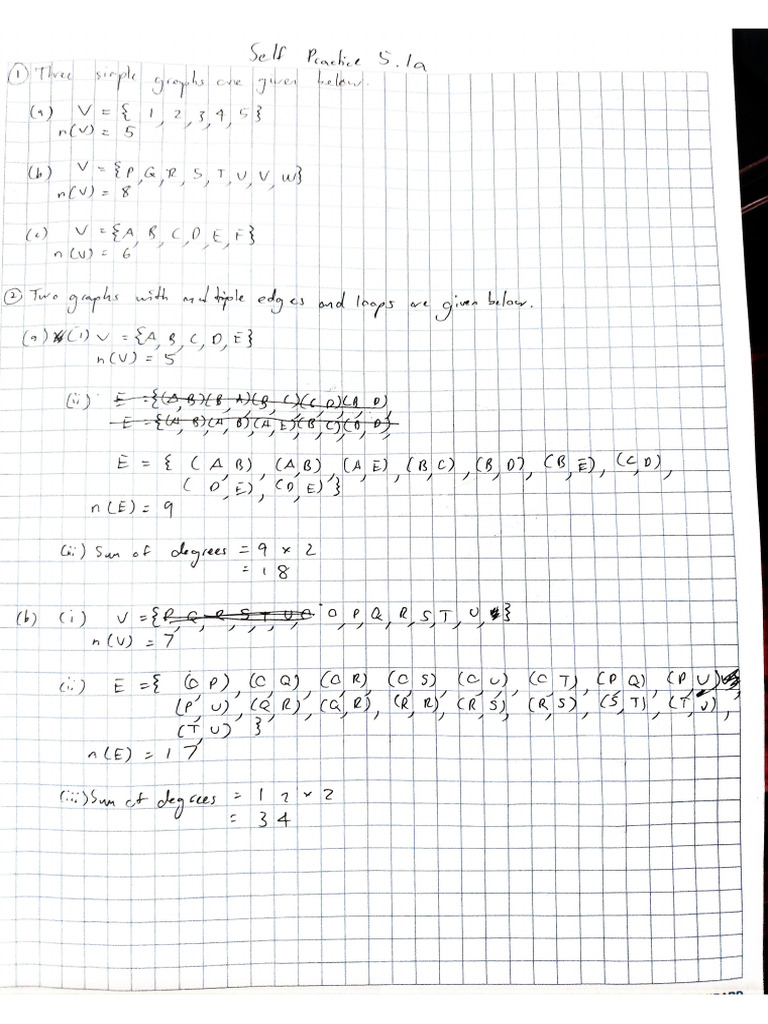 Self Practice 5.1a
① Three simple graphs are given below.
(a) V = { 1, 2, 3, 4, 5}
n(V) = 5
(b) V = {P, Q, R, S, T, U, V, W}
n(V) = 8
(c) V = {A, B, C, D, E, F}
n(V) = 6
② Two graphs with multiple edges and loops are given below.
(a) (i) V = {A, B, C, D, E}
n(V) = 5
(ii) E = {(A,B)(B,A)(B,C)(C,D)(B,D),
E = {(A,B)(A,B)(A,E)(B,C)(B,D),
E = { (A,B), (A,B), (A,E), (B,C), (B,D), (B,E), (C,D),
(D,E), (D,E)}
n(E) = 9
(iii) Sum of degrees = 9 × 2
= 18
(b) (i) V = {P, Q, R, S, T, U, O, P, Q, R, S, T, U}
n(V) = 7
(ii) E = { (O,P), (O,Q), (O,R), (O,S), (O,U), (O,T), (P,Q), (P,U),
(P,U), (Q,R), (Q,R), (R,R), (R,S), (R,S), (S,T), (T,U),
(T,U) }
n(E) = 17
(iii) Sum of degrees = 17 × 2
= 34